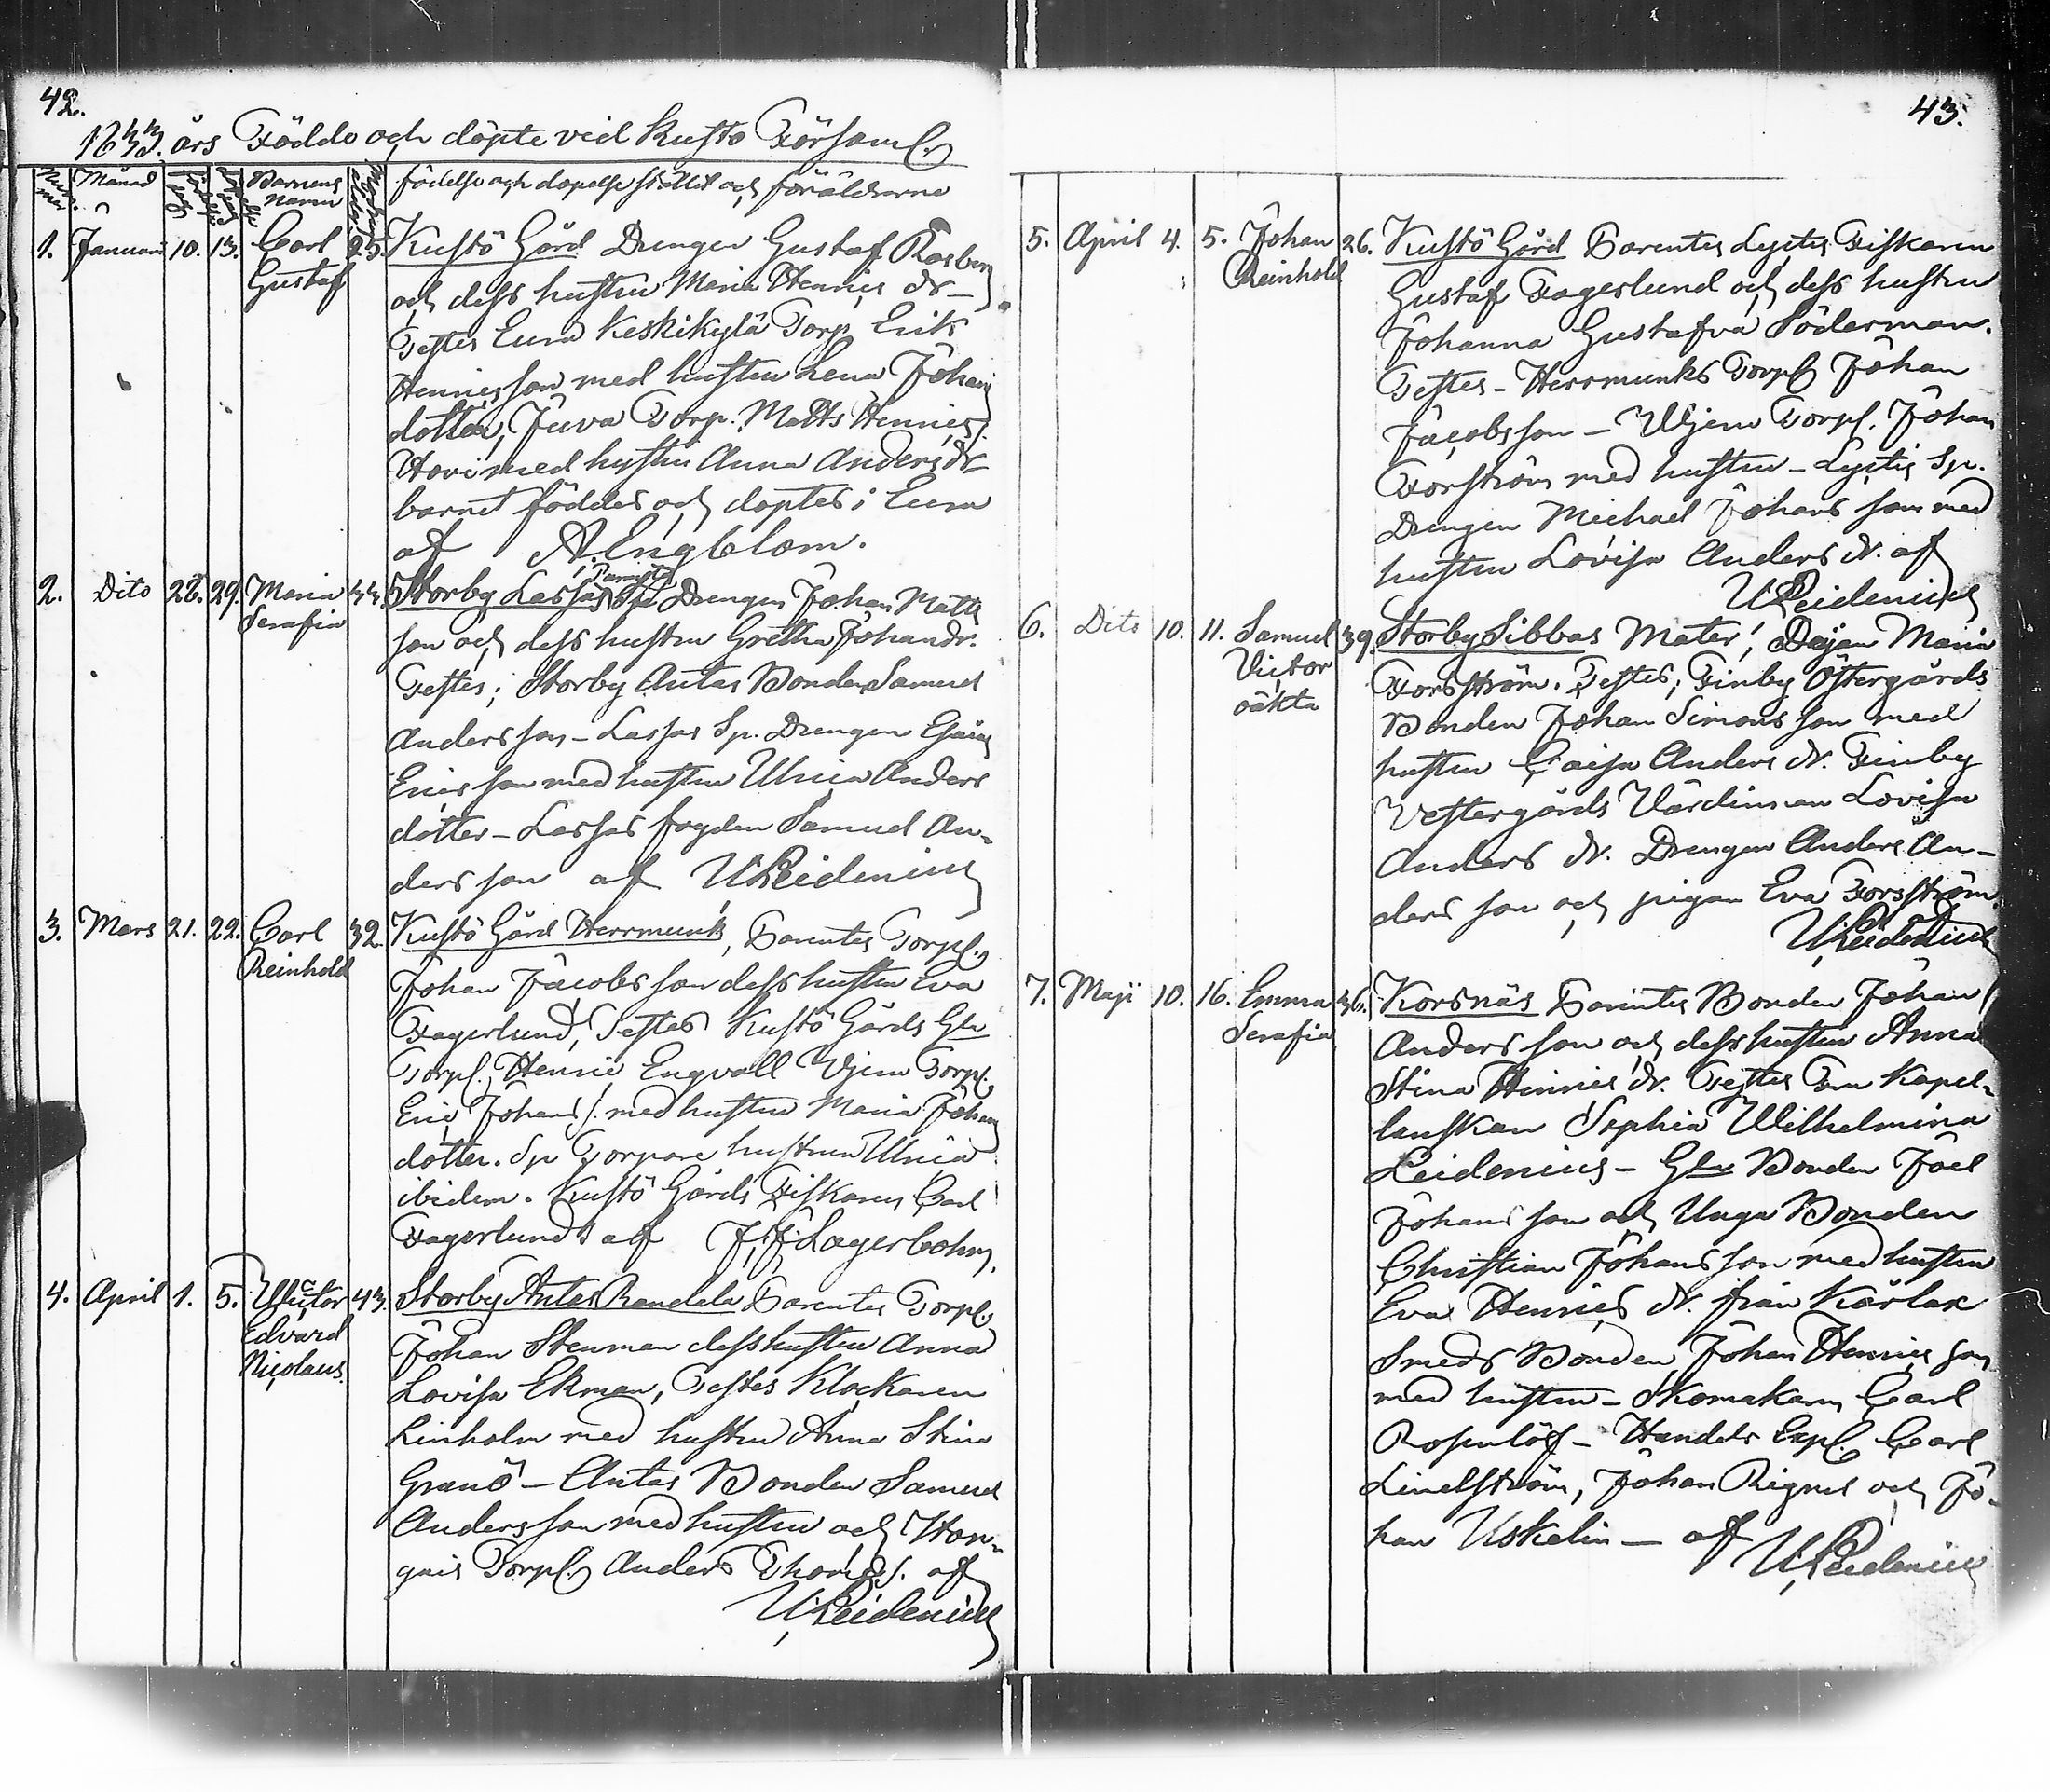 42.
1833. års Födde och döpte vid Kustö Församl.
Månad
Barnens namn
födelse och döpelse stället och föräldrarne
1. Januari 10. 13. Carl Gustaf 25.
Kustö Gård Drengen Gustaf Rosberg
och dess hustru Maria Henrics dr
Testes Eura Keskikylä Torp. Erik
Henricsson med hustru Lena Johans
dotter, Juva Torp. Matts Henrics.
Hovi med hustru Anna Anders dr
barnet föddes och döptes i Eura
af A. Engblom.
2. Dito 28. 29. Maria Serafia 33.
Storby Lassas Drengen Johan Matts
son och dess hustru Gretha Johansdr.
Testes; Storby Antas Bonden Samuel
Andersson – Lassas Sp. Drengen
Ericsson med hustru Ulrica Anders
dotter – Lassas fogden Samuel An-
dersson af U. Leidenius
3. Mars 21. 22. Carl Reinhold 32.
Kustö Gård Herrmunks, Parentes Torp.
Johan Jacobsson dess hustru Eva
Fagerlund, Testes Kustö Gårds Gla
Torp. Henric Engvall Vjern Torp.
Eric Johans s. med hustru Maria Johans
dotter. Sp Torpare hustrun Ulrica
ibidem. Kustö Gårds Fiskaren Carl
Fagerlund af J. J. Lagerbohm.
4. April 1. 5. Victor Edvard Nicolaus. 43.
Storby Antas Randala Parentes Torp.
Johan Stenman dess hustru Anna
Lovisa Ekman, Testes Klockaren
Linholm med hustru Anna Stina
Granö – Antas Bonden Samuel
Andersson med hustru och Hon-
gais Torp. Anders Thomæs. af
U. Leidenius
43.
5. April 4. 5. Johan Reinhold 26.
Kustö Gård Parentes Lyctis Fiskaren
Gustaf Fagerlund och dess hustru
Johanna Gustafva Söderman.
Testes – Herrmunks Torp. Johan
Jacobsson – Vjern Torp. Johan
Forström med hustru – Lyctis Sp.
Drengen Michael Johansson med
hustru Lovisa Anders dr. af
U. Leidenius
6. Dito 10. 11. Samuel Victor oäkta 39.
Storby Sibbas Mater; Dejan Maria
Forsström. Testes; Finby Östergårds
Bonden Johan Simonsson med
hustru Caisa Anders dr. Finby
Vestergårds Värdinnan Lovisa
Anders dr. Drengen Anders An-
dersson och pigan Eva Forsström.
U. Leidenius
7. Maji 10. 16. Emma Serafia 36.
Korsnäs Parentes Bonden Johan
Andersson och dess hustru Anna
Stina Henrics dr. Testes Fru Kapel-
lanskan Sophia Wilhelmina
Leidenius – Gla Bonden Joel
Johansson och Unga Bonden
Christian Johansson med hustru
Eva Henrics dr. från Kärlax
Smeds Bonden Johan Henricsson
med hustru – Skomakaren Carl
Rosenlöf – Handels Exp. Carl
Lindström, Johan Rignel och Jo-
han Uskelin – af
U. Leidenius